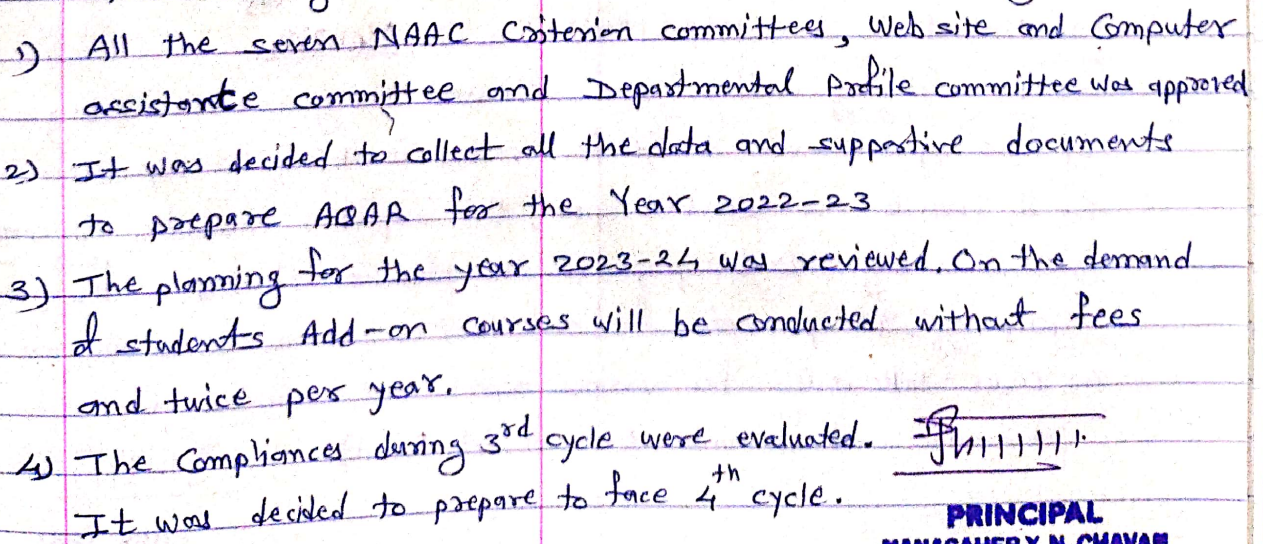 1) All the seven NAAC Criterion committees, Web site and Computer
assistance committee and Departmental Profile committee was approved
2) It was decided to collect all the data and supportive documents
to prepare AQAR for the Year 2022-23
3) The planning for the year 2023-24 was reviewed. On the demand
of students Add-on courses will be conducted without fees
and twice per year.
4) The Compliances during 3rd cycle were evaluated.
It was decided to prepare to face 4th cycle.
PRINCIPAL
Y. N. CHAVAN